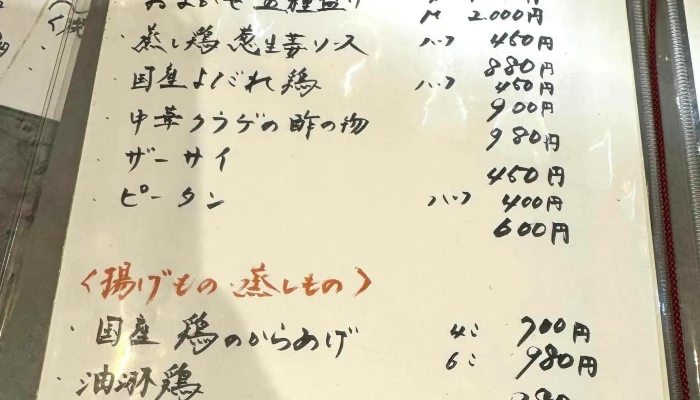 2.000円
・蒸し鶏 葱生姜ソス ハーフ 450円
880円
・国産よだれ鶏 ハーフ 450円
900円
・中華クラゲの酢の物 980円
・ザーサイ 450円
・ピータン ハーフ 400円
600円
〈揚げもの 蒸しもの〉
・国産 鶏のからあげ 4コ 700円
6コ 980円
・油淋鶏